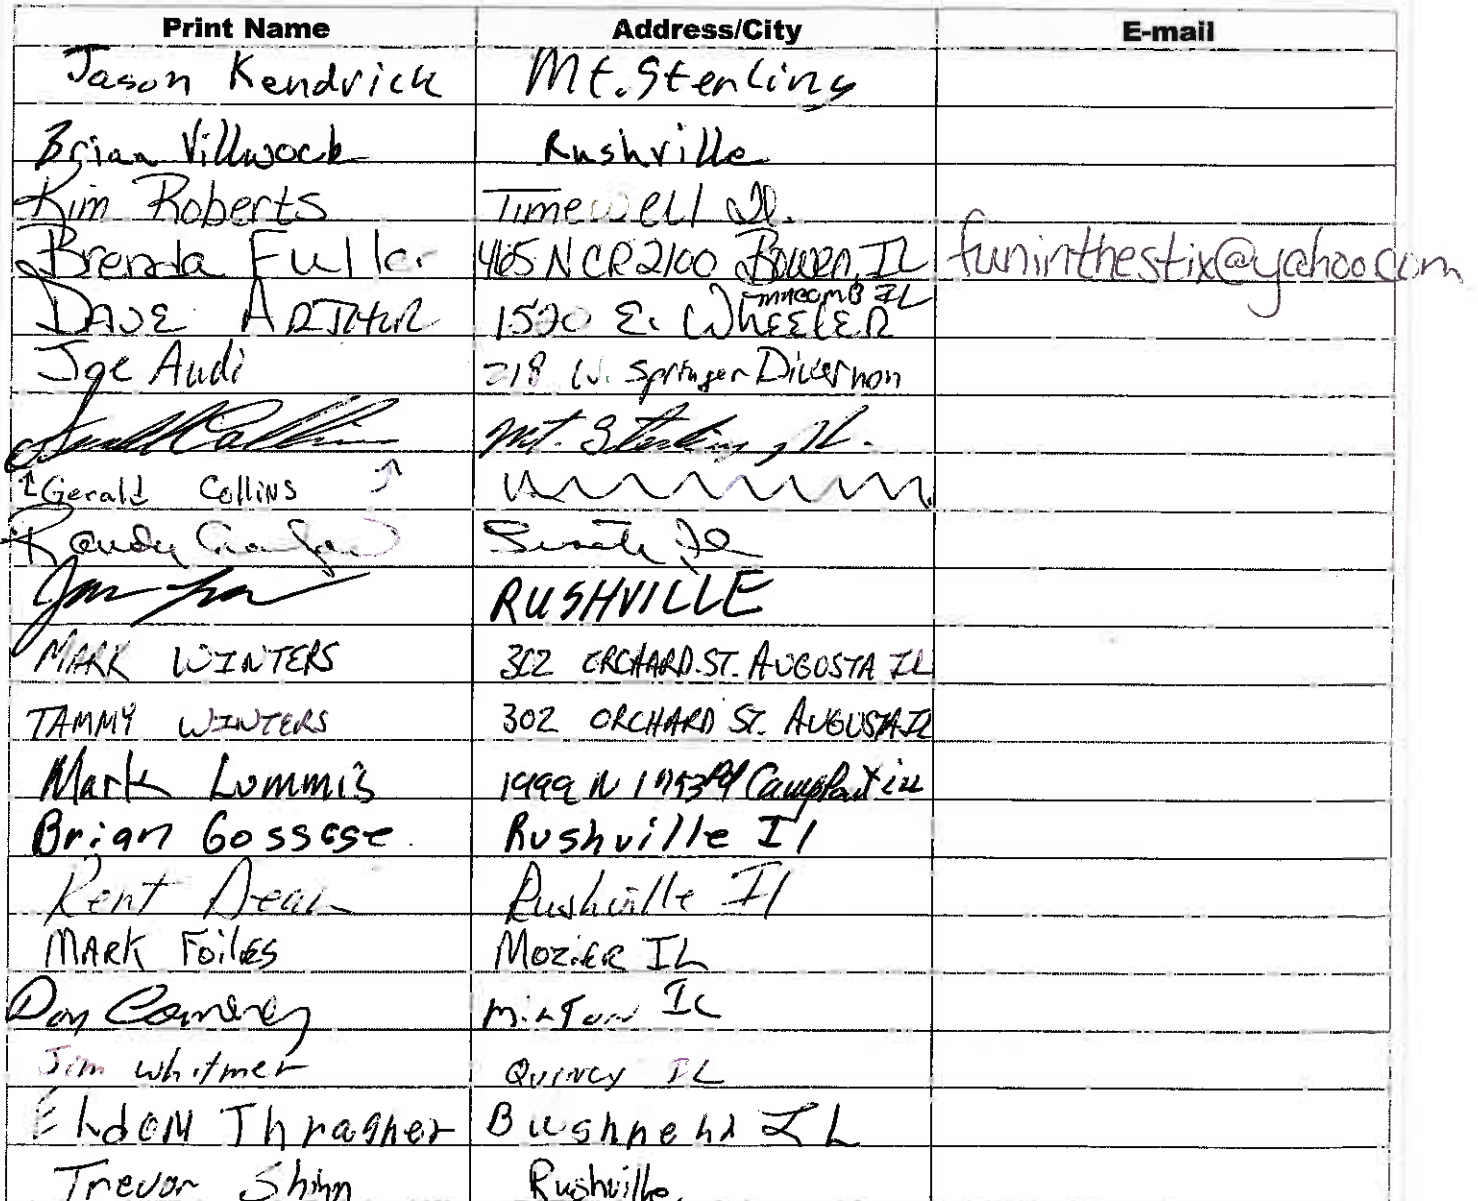 Print Name Address/City E-mail
Jason Kendrick Mt. Sterling
Brian Villwock Rushville
Kim Roberts Timewell Il.
Brenda Fuller 465 N CR 2100 Bowen, IL funinthestix@yahoo.com
DAVE ARTHUR 1520 E. WHEELER MACOMB IL
Joe Audi 218 W. Springer Divernon
Gerald Collins Mt. Sterling, IL.
Gerald Collins
Randy Il
RUSHVILLE
MARK WINTERS 302 ORCHARD. ST. AUGUSTA IL
TAMMY WINTERS 302 ORCHARD ST. AUGUSTA IL
Mark Lummis 1999 N Camp Point
Brian Gossage Rushville Il
Kent Dean Rushville Il
MARK Foiles Mozier IL
IL
Jim Whitmer Quincy IL
Eldon Thrasher Bushnell IL
Trevor Shinn Rushville